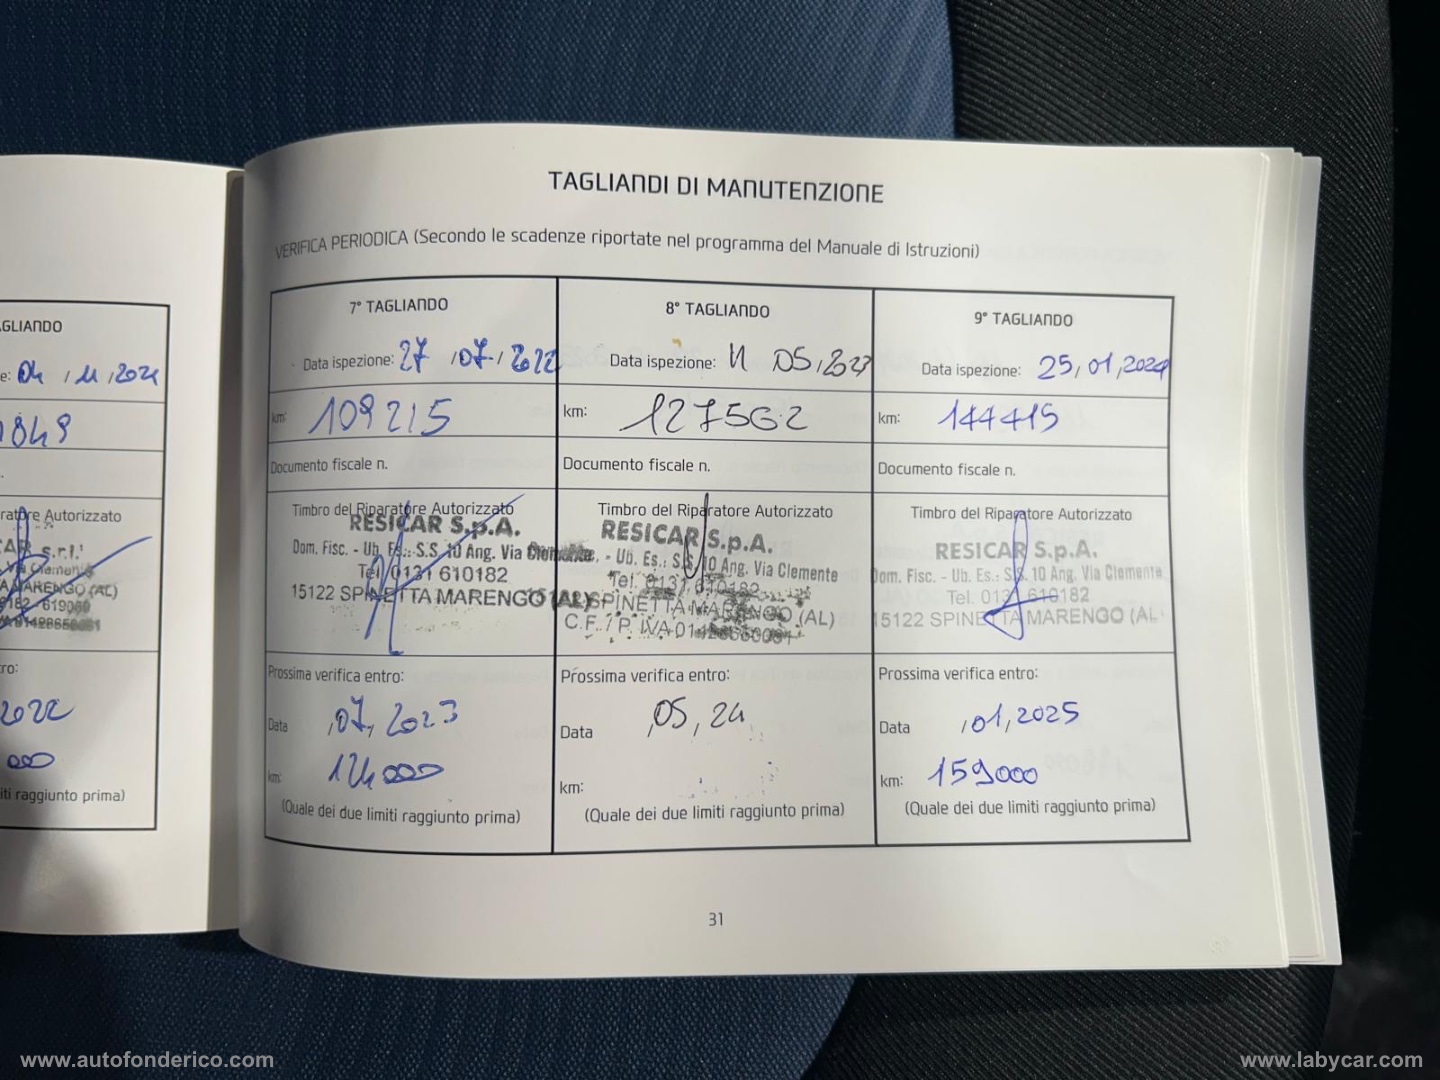 TAGLIANDI DI MANUTENZIONE
VERIFICA PERIODICA (Secondo le scadenze riportate nel programma del Manuale di Istruzioni)
AGLIANDO
e: 04 / 11 , 2021
1849
.
ratore Autorizzato
CAR s.r.l.
MARENGO (AL)
ro:
2022
000
iti raggiunto prima)
7° TAGLIANDO
Data ispezione: 27 / 07 / 2022
km: 109215
Documento fiscale n.
Timbro del Riparatore Autorizzato
RESICAR S.p.A.
Dom. Fisc. - Ub. Es.: S.S. 10 Ang. Via Clemente
Tel. 0131 610182
15122 SPINETTA MARENGO (AL)
Prossima verifica entro:
Data , 07 , 2023
km: 124000
(Quale dei due limiti raggiunto prima)
8° TAGLIANDO
Data ispezione: 11 05 , 2023
km: 127562
Documento fiscale n.
Timbro del Riparatore Autorizzato
RESICAR S.p.A.
. - Ub. Es.: S.S. 10 Ang. Via Clemente
Tel. 0131 610182
SPINETTA MARENGO (AL)
C.F. / P. IVA
Prossima verifica entro:
Data , 05 , 24
km:
(Quale dei due limiti raggiunto prima)
9° TAGLIANDO
Data ispezione: 25 , 01 , 2024
km: 144415
Documento fiscale n.
Timbro del Riparatore Autorizzato
RESICAR S.p.A.
Dom. Fisc. - Ub. Es.: S.S. 10 Ang. Via Clemente
Tel. 0131 610182
15122 SPINETTA MARENGO (AL)
Prossima verifica entro:
Data , 01 , 2025
km: 159000
(Quale dei due limiti raggiunto prima)
31
www.autofonderico.com
www.labycar.com